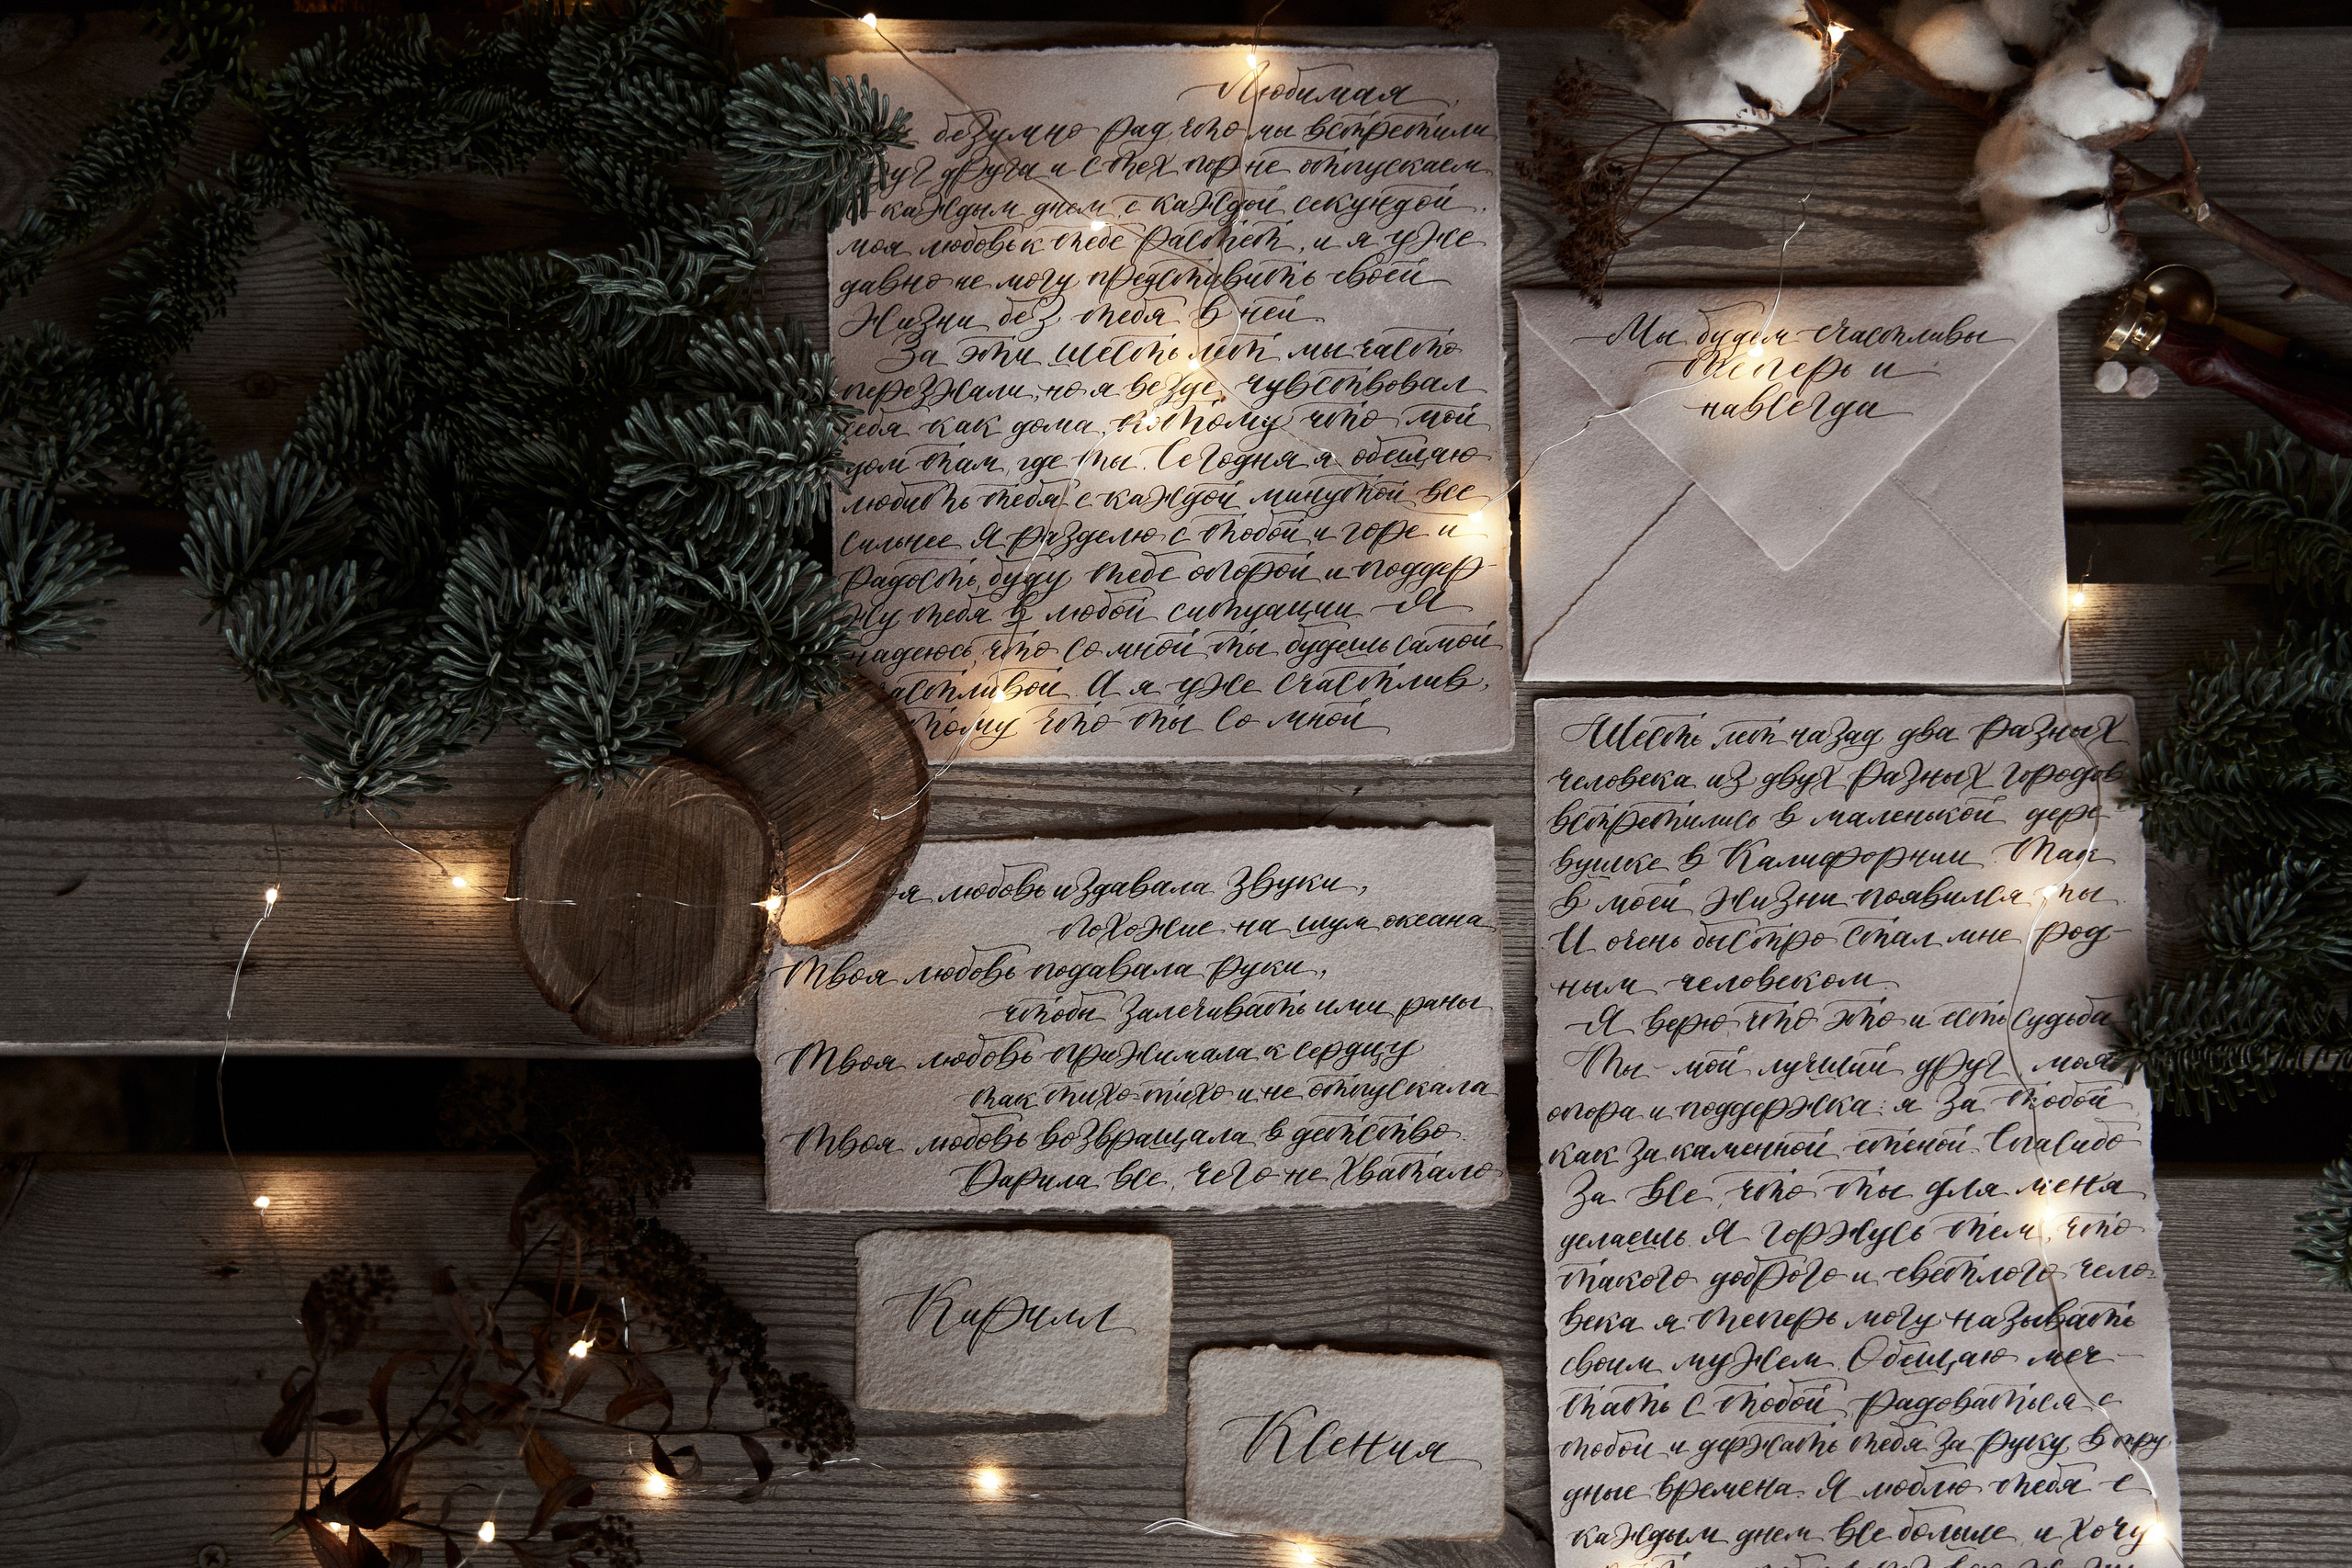 Любимая,
безумно рад, что мы встретили
друг друга и с тех пор не отпускаем.
С каждым днем, с каждой секундой,
моя любовь к тебе растет, и я уже
давно не могу представить своей
жизни без тебя в ней.
За эти шесть лет мы часто
переезжали, но я везде чувствовал
себя как дома, потому что мой
дом там, где ты. Сегодня я обещаю
любить тебя с каждой минутой все
сильнее. Я разделю с тобой и горе и
радость, буду тебе опорой и поддер-
жу тебя в любой ситуации. Я
надеюсь, что со мной ты будешь самой
счастливой. А я уже счастлив,
потому что ты со мной
Мы будем счастливы
теперь и
навсегда
Твоя любовь издавала звуки,
похожие на шум океана
Твоя любовь подавала руки,
чтобы залечивать ими раны
Твоя любовь прижимала к сердцу
так тихо-тихо и не отпускала
Твоя любовь возвращала в детство.
Дарила все, чего не хватало
Кирилл
Ксения
Шесть лет назад два разных
человека из двух разных городов
встретились в маленькой дере-
вушке в Калифорнии. Так
в моей жизни появился ты.
И очень быстро стал мне род-
ным человеком.
Я верю, что это и есть судьба
Ты - мой лучший друг, моя
опора и поддержка: я за тобой
как за каменной стеной. Спасибо
за все, что ты для меня
делаешь. Я горжусь тем, что
такого доброго и светлого чело-
века я теперь могу называть
своим мужем. Обещаю меч-
тать с тобой, радоваться с
тобой и держать тебя за руку в тру
дные времена. Я люблю тебя с
каждым днем все больше, и хочу